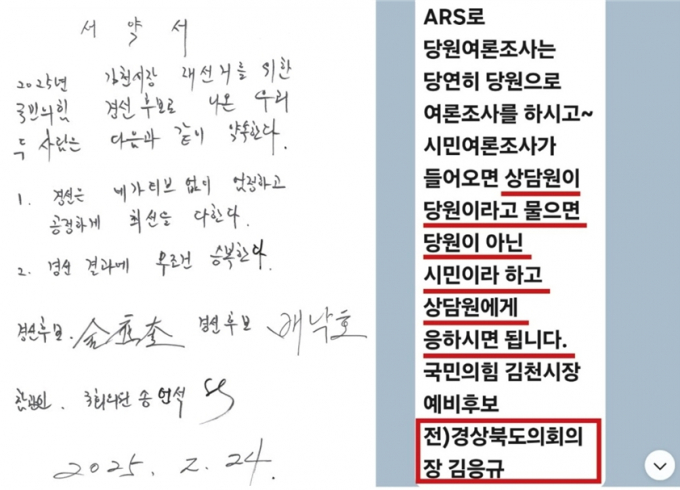 서 약 서
2025년 김천시장 재선거를 위한
국민의힘 경선 후보로 나온 우리
두 사람은 다음과 같이 약속한다.
1. 경선은 네가티브 없이 엄정하고
공정하게 최선을 다한다.
2. 경선 결과에 무조건 승복한다.
경선후보. 金應奎 경선후보 배낙호
참관인. 국회의원 송언석
2025. 2. 24.
ARS로
당원여론조사는
당연히 당원으로
여론조사를 하시고~
시민여론조사가
들어오면 상담원이
당원이라고 물으면
당원이 아닌
시민이라 하고
상담원에게
응하시면 됩니다.
국민의힘 김천시장
예비후보
전)경상북도의회의
장 김응규